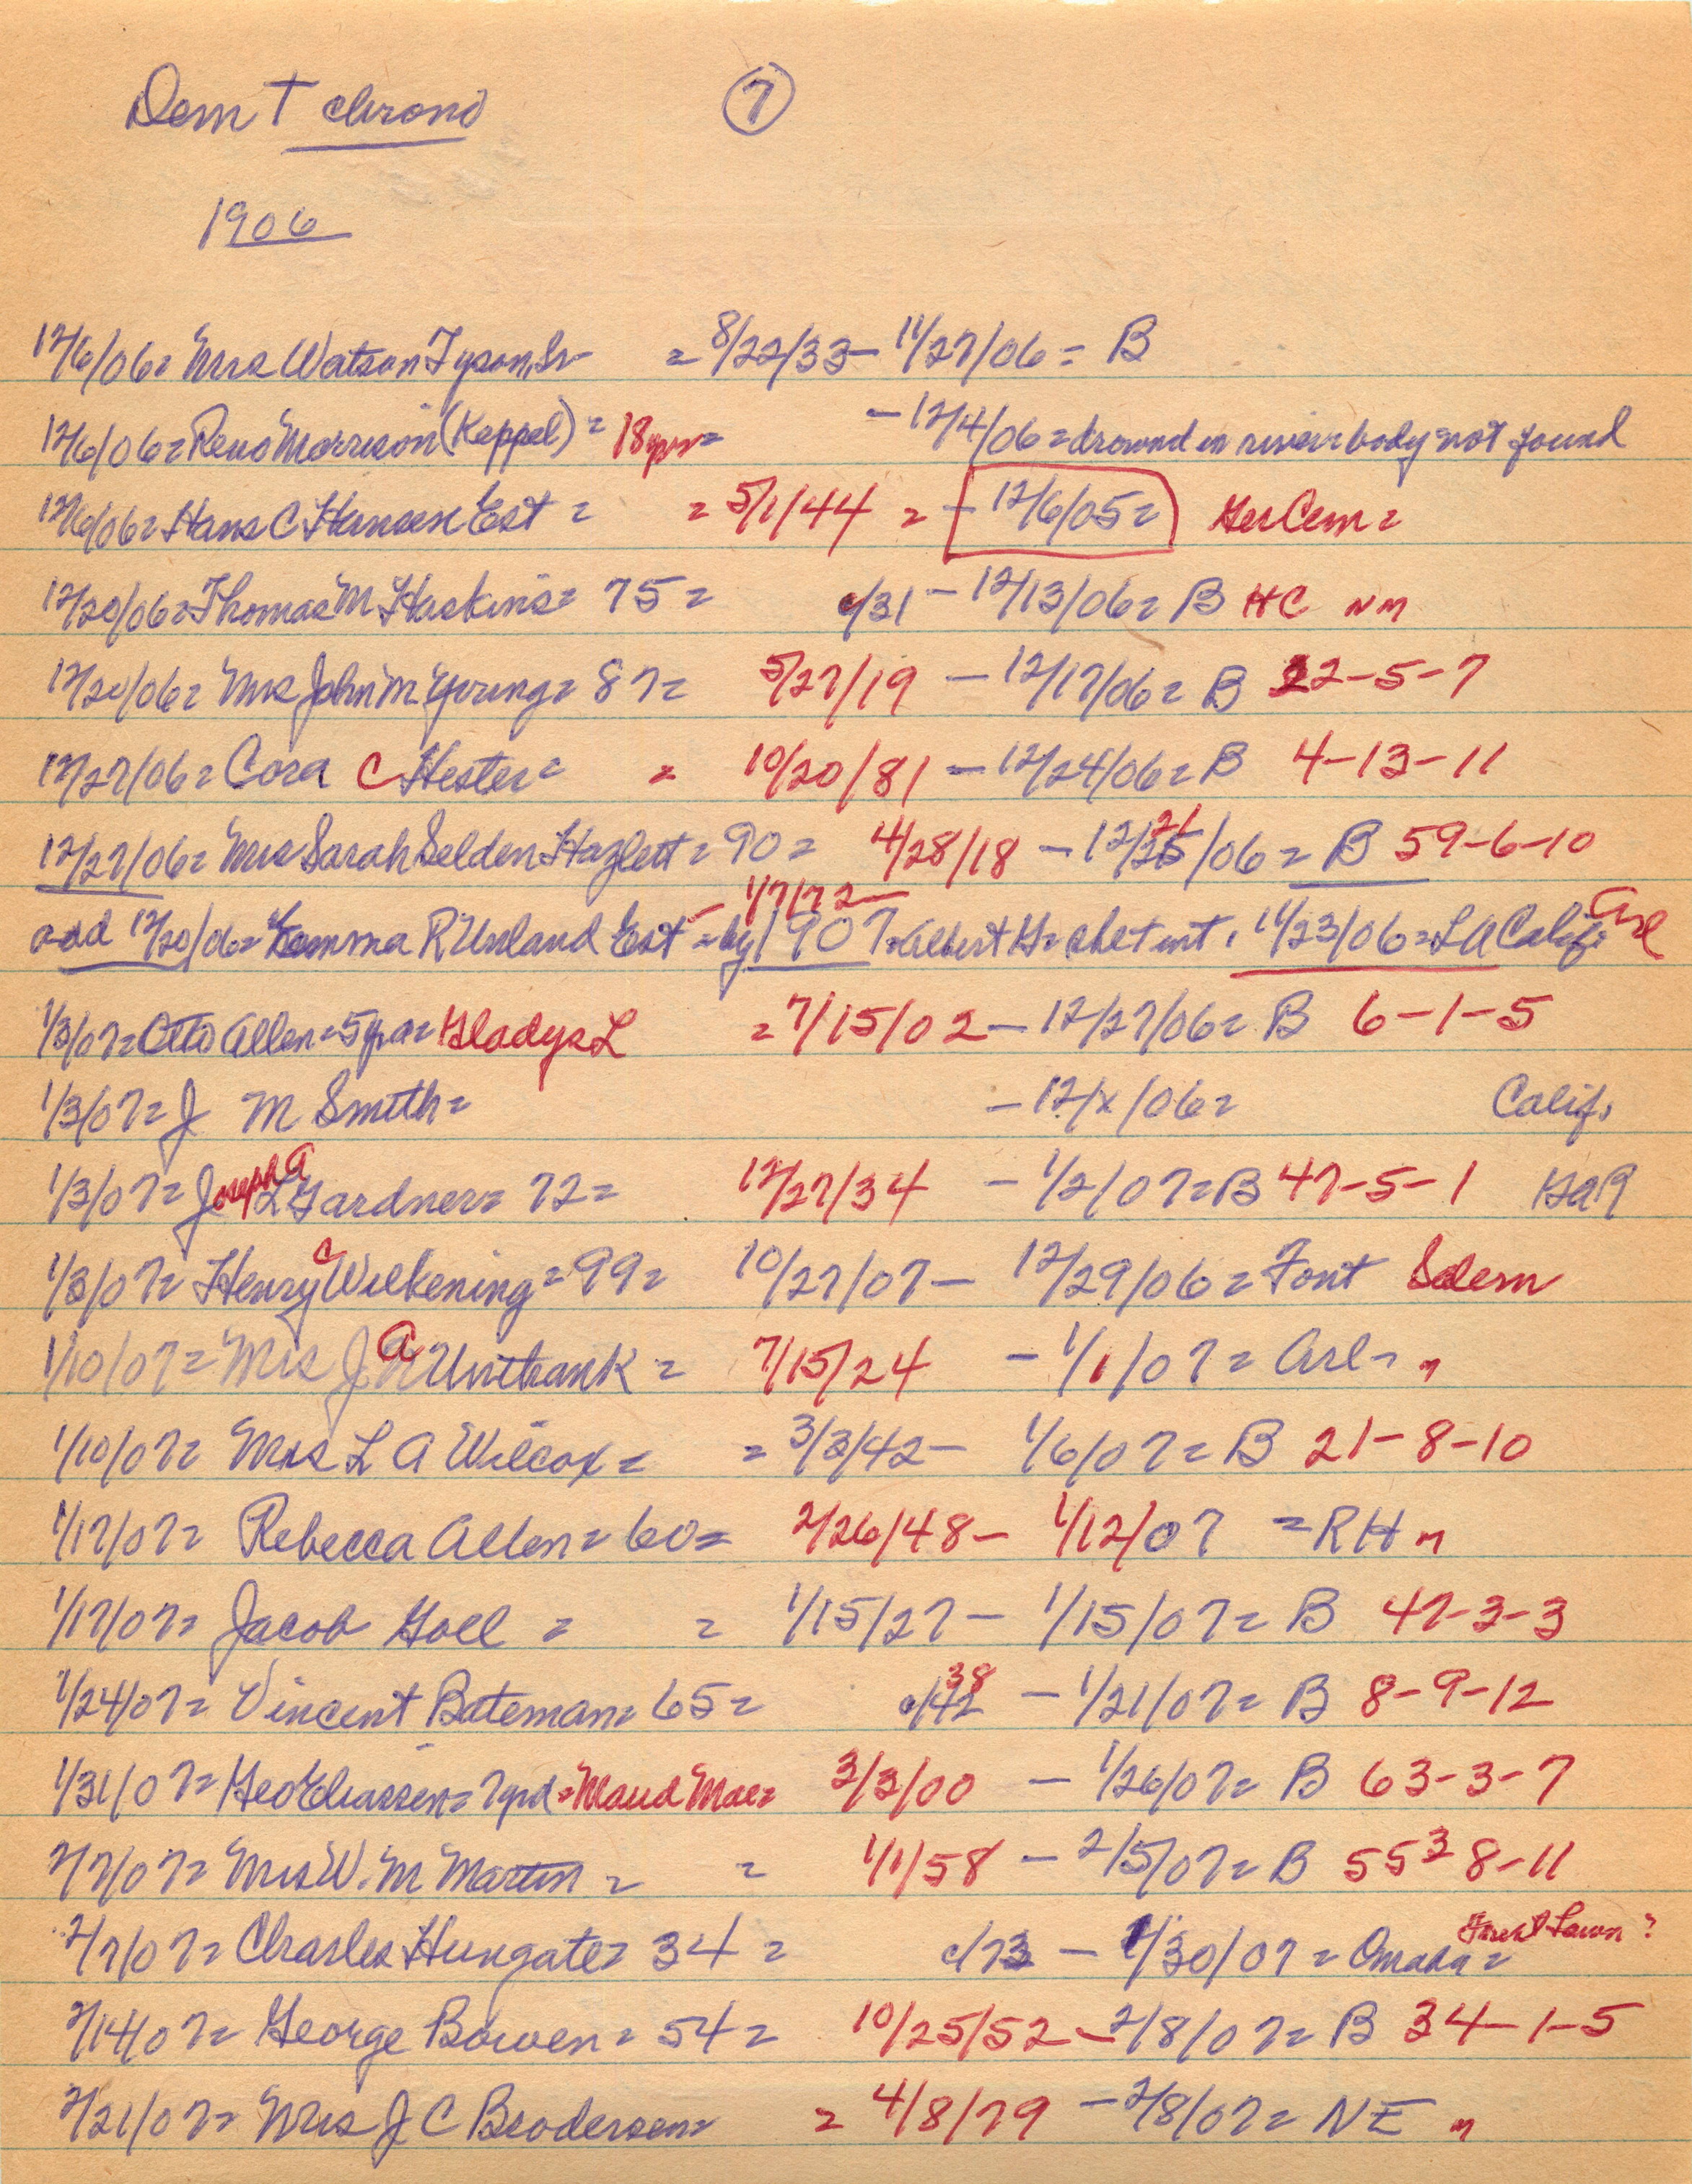 Dem T chrono ⑦
1906
12/6/06= Mrs Watson Tyson, Sr = 8/22/33 - 11/27/06 = B
12/6/06= Reno Morrison (Keppel) = 18 yrs= - 12/4/06 = drownd in river body not found
12/6/06= Hans C Hansen Est = = 5/1/44 = - 12/6/05 = Ger Cem =
12/20/06= Thomas M Haskins= 75 = c/31 - 12/13/06= B HC NM
12/20/06= Mrs John M Young= 87= 5/27/19 - 12/17/06= B 22-5-7
12/27/06= Cora C Hester= = 10/20/81 - 12/24/06= B 4-13-11
12/27/06= Mrs Sarah Selden Hazlett = 90 = 4/28/18 - 12/25/06 = B 59-6-10
21
- 1/7/72 -
add 12/20/06= Emma R Unland Est = by 1907 = Albert G = chet int. 11/23/06= LA Calif. Arl
1/3/07= Otto Allen= 5 ya= Gladys L = 7/15/02 - 12/27/06= B 6-1-5
1/3/07= J M Smith= - 12/x/06= Calif.
1/3/07= Joseph A L Gardner= 72= 12/27/34 - 1/2/07= B 47-5-1 GAR
1/3/07= Henry C Wilkening= 99= 10/27/07 - 12/29/06= Font Salem
1/10/07= Mrs J A Unthank = 7/15/24 - 1/1/07= Arl- n
1/10/07= Mrs L A Wilcox = = 3/3/42 - 1/6/07= B 21-8-10
1/17/07= Rebecca Allen= 60= 2/26/48 - 1/12/07 = RH n
1/17/07= Jacob Goll = = 1/15/27 - 1/15/07= B 47-3-3
1/24/07= Vincent Bateman= 65= c/42 38 - 1/21/07= B 8-9-12
1/31/07= Geo Eliassen= 7 yrd= Maud Mae= 3/3/00 - 1/26/07= B 63-3-7
2/7/07= Mrs W. M Martin = = 1/1/58 - 2/5/07= B 55 3 8-11
2/7/07= Charles Hungate= 34 = c/73 - 1/30/07= Omaha = Forest Lawn ?
2/14/07= George Bowen = 54 = 10/25/52 - 2/8/07= B 34-1-5
2/21/07= Mrs J C Brodersen= = 4/8/79 - 2/8/07= NE n